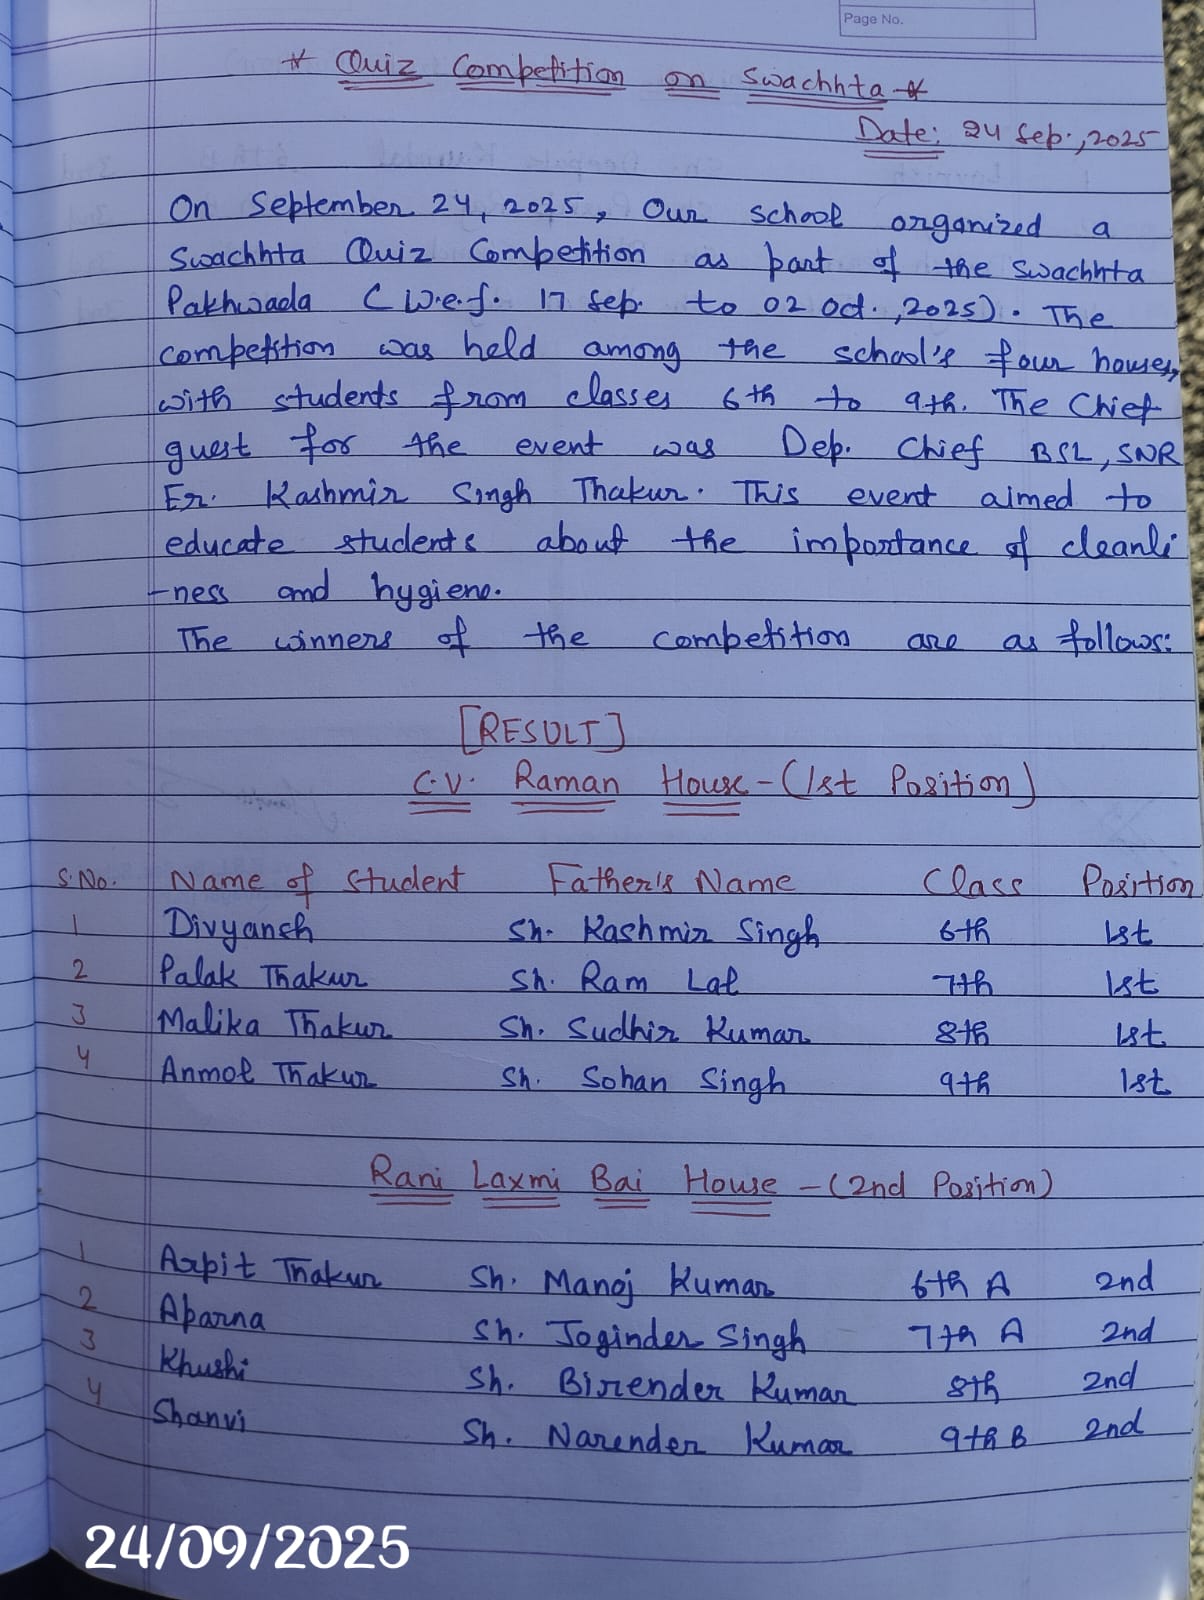 Page No.
* Quiz Competition on Swachhta *
Date: 24 Sep., 2025
On September 24, 2025, Our school organized a
Swachhta Quiz Competition as part of the Swachhta
Pakhwada (w.e.f. 17 Sep. to 02 Oct., 2025). The
competition was held among the school's four houses,
with students from classes 6th to 9th. The Chief
guest for the event was Dep. Chief BSL, SNR
Er. Kashmir Singh Thakur. This event aimed to
educate students about the importance of cleanli
-ness and hygiene.
The winners of the competition are as follows:
[RESULT]
C.V. Raman House - (1st Position)
S.No. Name of Student Father's Name Class Position
1 Divyansh Sh. Kashmir Singh 6th 1st
2 Palak Thakur Sh. Ram Lal 7th 1st
3 Malika Thakur Sh. Sudhir Kumar 8th 1st
4 Anmol Thakur Sh. Sohan Singh 9th 1st
Rani Laxmi Bai House - (2nd Position)
1 Arpit Thakur Sh. Manoj Kumar 6th A 2nd
2 Aparna Sh. Joginder Singh 7th A 2nd
3 Khushi Sh. Birender Kumar 8th 2nd
4 Shanvi Sh. Narender Kumar 9th B 2nd
24/09/2025